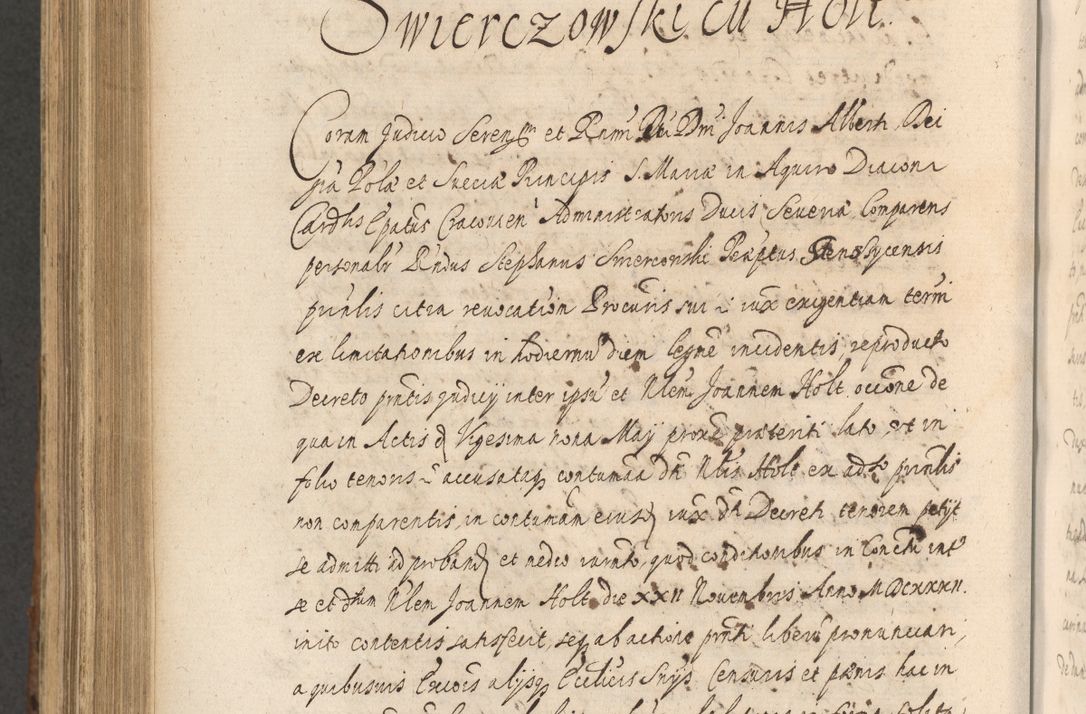 Swierczowski cu Holt.
Coram Judicio Serenssmi et Rnmi Dni Dni Joannis Alberti Dei
gra Polæ et Sueciæ Principis S. Mariæ in Aquiro Diaconi
Cardlis Epatus Cracovien Administratoris Ducis Severiæ Comparens
personalr Rndus Stephanus Swierconski Præptus Stenzycensis
prinlis citra revocatiōn Procuris sui iux exigentiam termi
ex limitationibus in hodiernū diem legne incidentis, reproducto
Decreto prntis judicij inter ipsū et Nlem Joannem Holt occōne de
qua in Actis d Vigesima nona Maij proxe præteriti lato, ut in
folio tenoris accusataq contumaa dn Nlis Holt ex adso prinlis
non comparentis, in contumām eiusd iux dn Decreti tenorem petijt
se admitti ad proband et medio iurnto, quod conditionibus in Conctu inter
se et dtum Nlem Joannem Holt die XXII Novembris Anno MDCXXXII.
inito contentis satisfecit, seq ab actione prnti liberū pronunciari,
a quibusvis Excōis alijsq Ecclīcis Snijs Censuris et pænis hac in